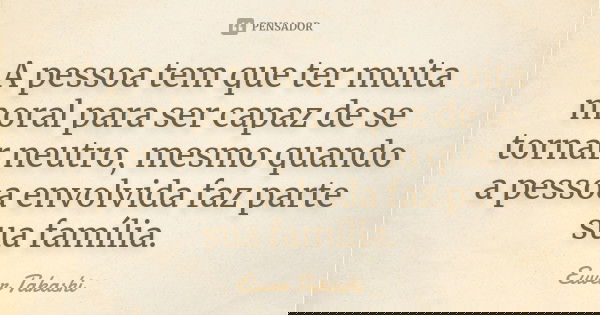 PENSADOR
A pessoa tem que ter muita
moral para ser capaz de se
tornar neutro, mesmo quando
a pessoa envolvida faz parte
sua família.
Takashi